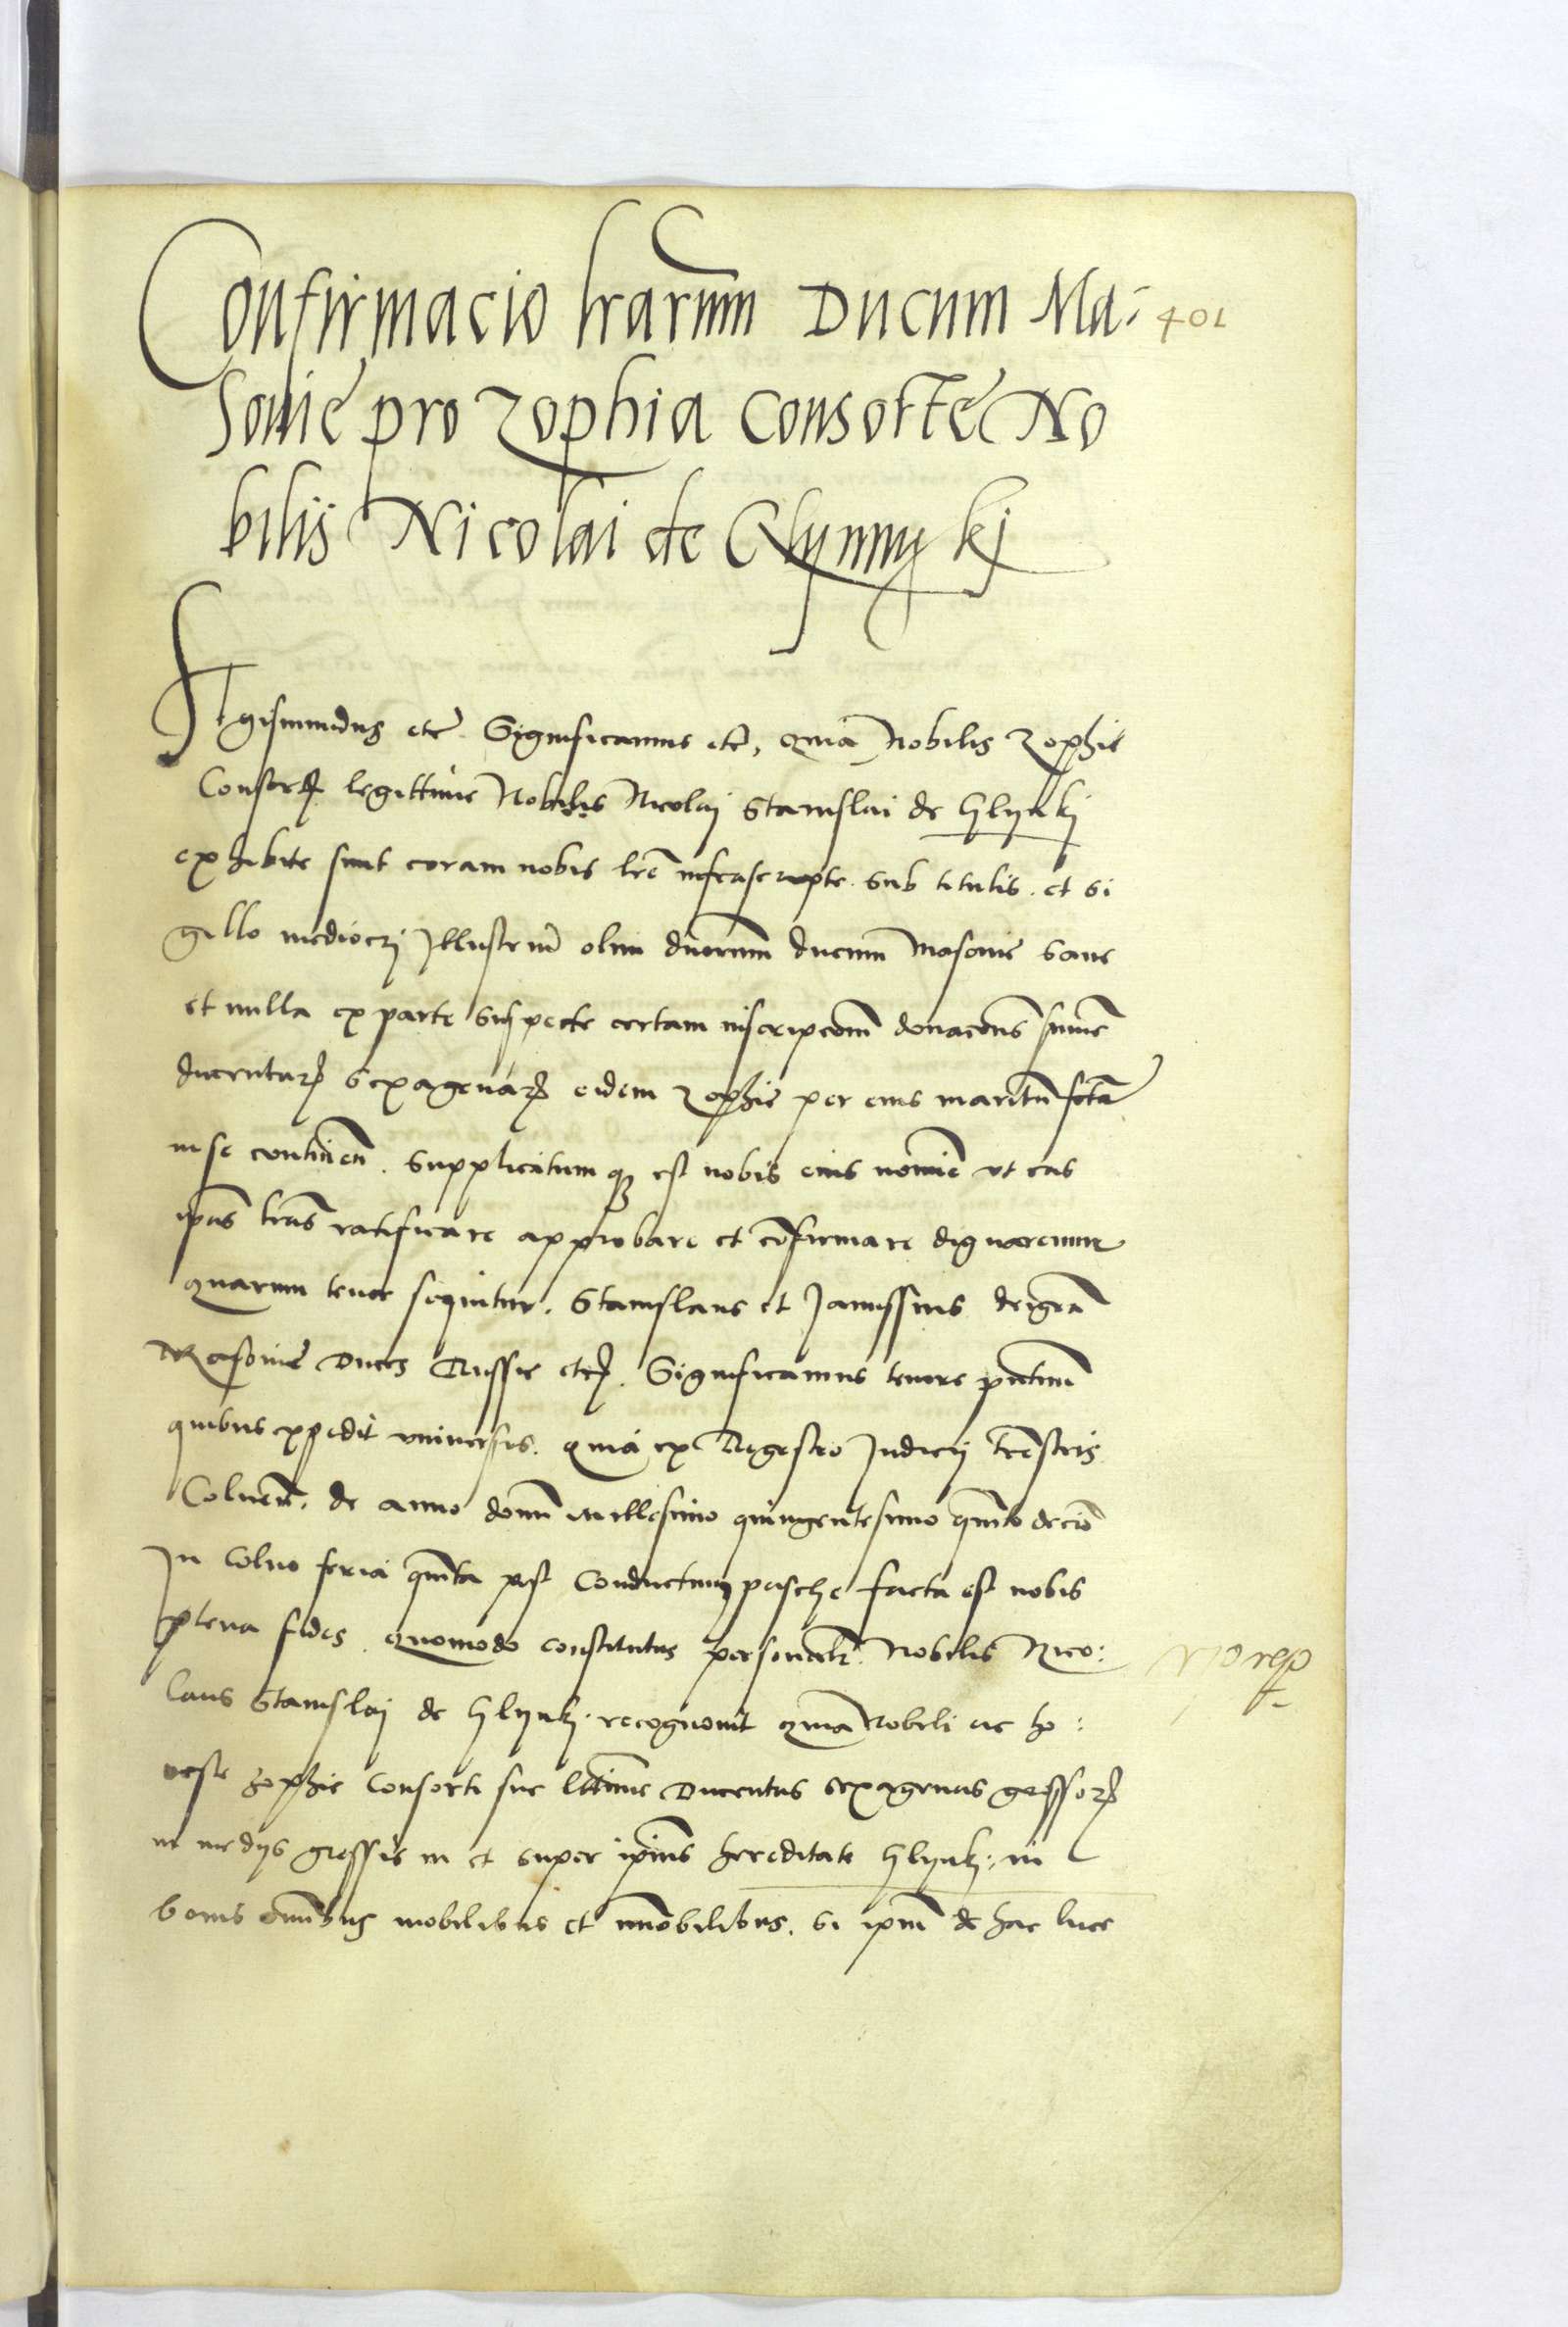 Confirmacio lrarum Ducum Ma- 401
sovie pro zophia consorte No
bilis Nicolai de Glynnky
Sigismundus etc. Significamus etc, quia Nobilis Zophie
Consort legittime Nobilis Nicolaj Stanislai de Hlynkj
exhibite sunt coram nobis lre infrascripte. sub titulis. et si
gillo mediocrj Jllustrium olim dnorum ducum Masovie sane
et nulla ex parte suspecte certam inscripcōm donacōnis summe
ducentarum sexagenarum eidem Zophie per eius maritū fcta
in se continen. Supplicatumque est nobis eius nomine ut eas
ipas lras ratificare approbare et cōfirmare dignaremur
quarum tenor sequitur. Stanislaus et Janussius dei gra
Masovie Duces Russie etc. Significamus tenore pntium
quibus expedit universis. quia ex Regestro Judicij trēstris
Colnen. de anno domī millesimo quingentesimo quinto decio
Jn Colno feria quinta post Conductum pasche facta est nobis
plena fides. quomodo constitutus personalr. Nobilis Nico:
laus Stanislaj de Hlynkj. recognovit quia Nobili ac ho:
neste Zophie Consorti sue lttime Ducentas sexagenas grossorum
in medijs grossis in et super ipius hereditate Hlynkj. in
bonis omnibus mobilibus et immobilibus. si ipm de hac luce